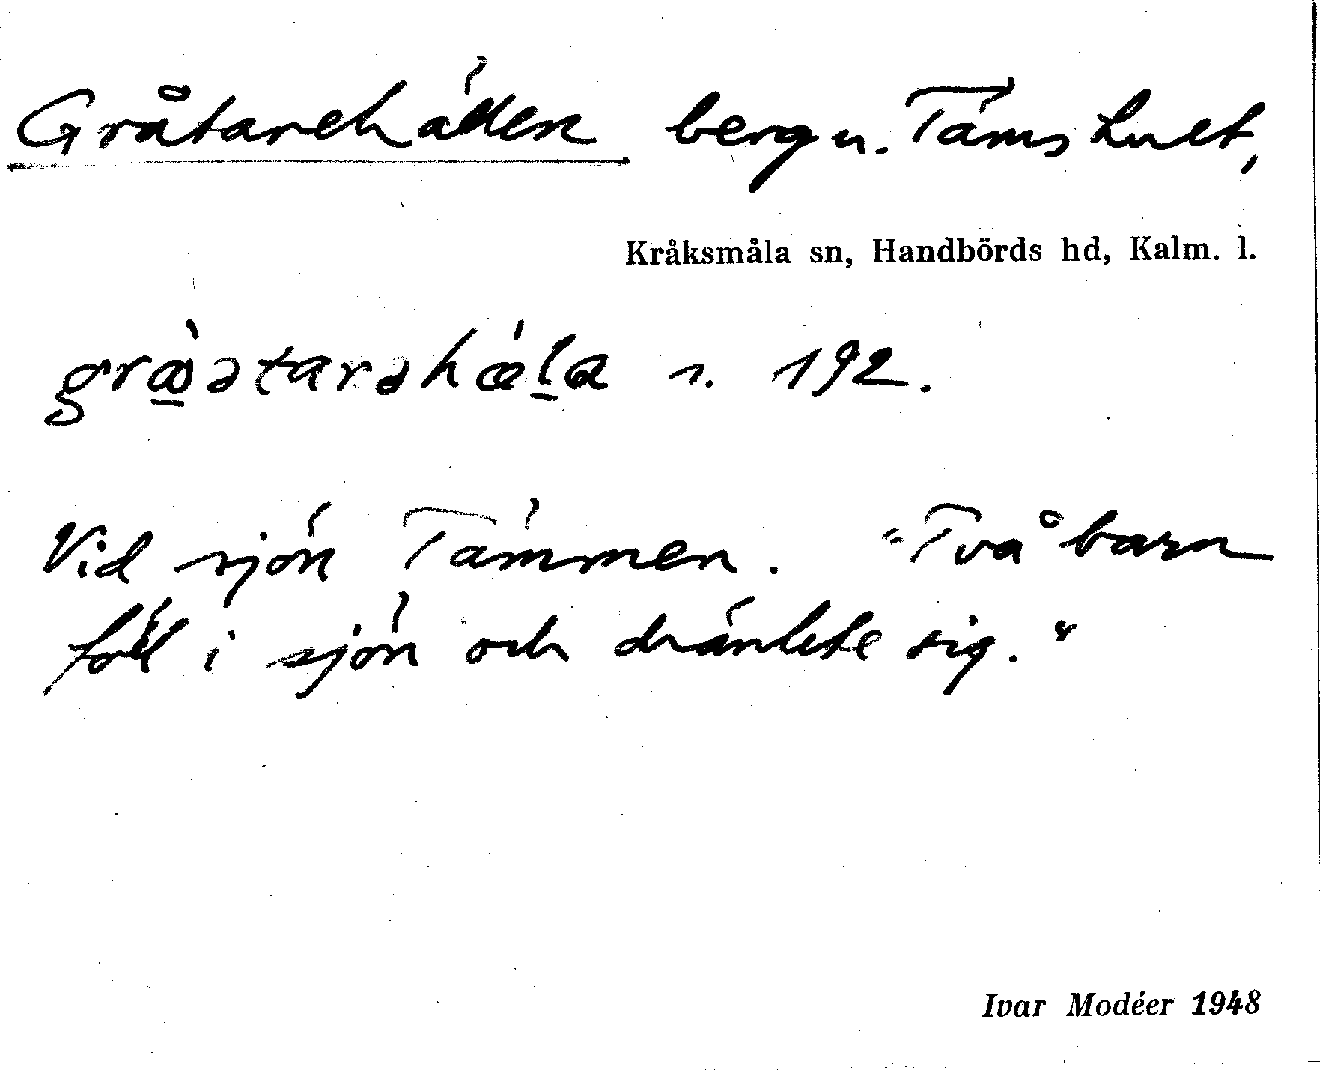 Gråtarehällen berg u. Tämshult,
Kråksmåla sn, Handbörds hd, Kalm. l.
s. 192.
Vid sjön Tämmen. "Två barn
föll i sjön och dränkte sig."
Ivar Modéer 1948